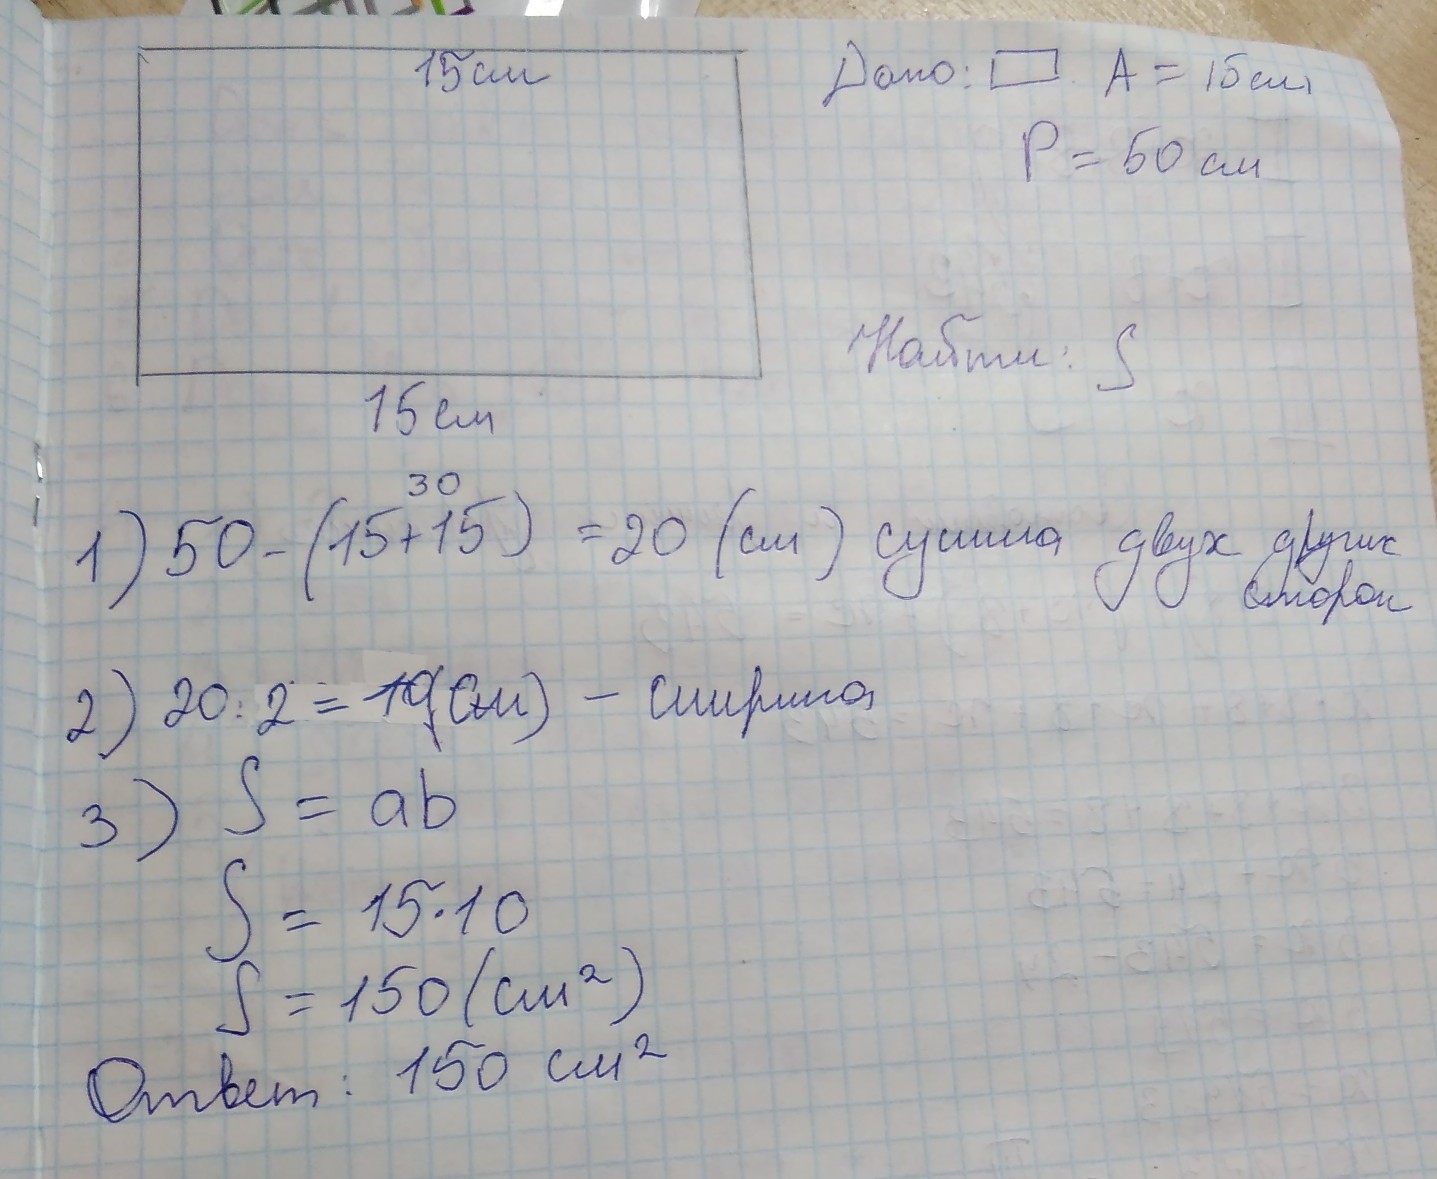 15см
Дано: A = 15см
P = 50 см
Найти: S
15см
30
1) 50-(15+15) =20 (см) сумма двух других
сторон
2) 20:2=10(см) - ширина
3) S = ab
S = 15·10
S = 150(см²)
Ответ: 150 см²